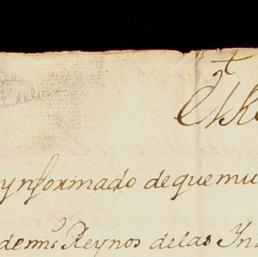 El Rey
ynformado de que mu
de mis Reynos de las In